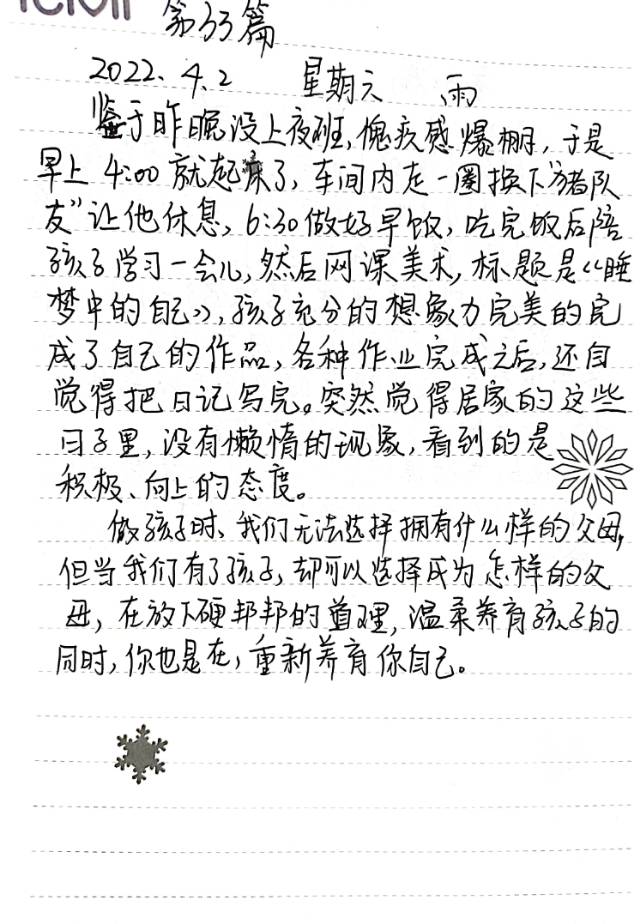 第33篇
2022.4.2 星期六 雨
鉴于昨晚没上夜班,愧疚感爆棚,于是
早上4:00就起床了,车间内走一圈换下"猪队
友"让他休息,6:30做好早饭,吃完饭后陪
孩子学习一会儿,然后网课美术,标题是《睡
梦中的自己》,孩子充分的想象力完美的完
成了自己的作品,各种作业完成之后,还自
觉得把日记写完。突然觉得居家的这些
日子里,没有懒惰的现象,看到的是
积极、向上的态度。
做孩子时、我们无法选择拥有什么样的父母,
但当我们有了孩子,却可以选择成为怎样的父
母,在放下硬邦邦的道理,温柔养育孩子的
同时,你也是在,重新养育你自己。